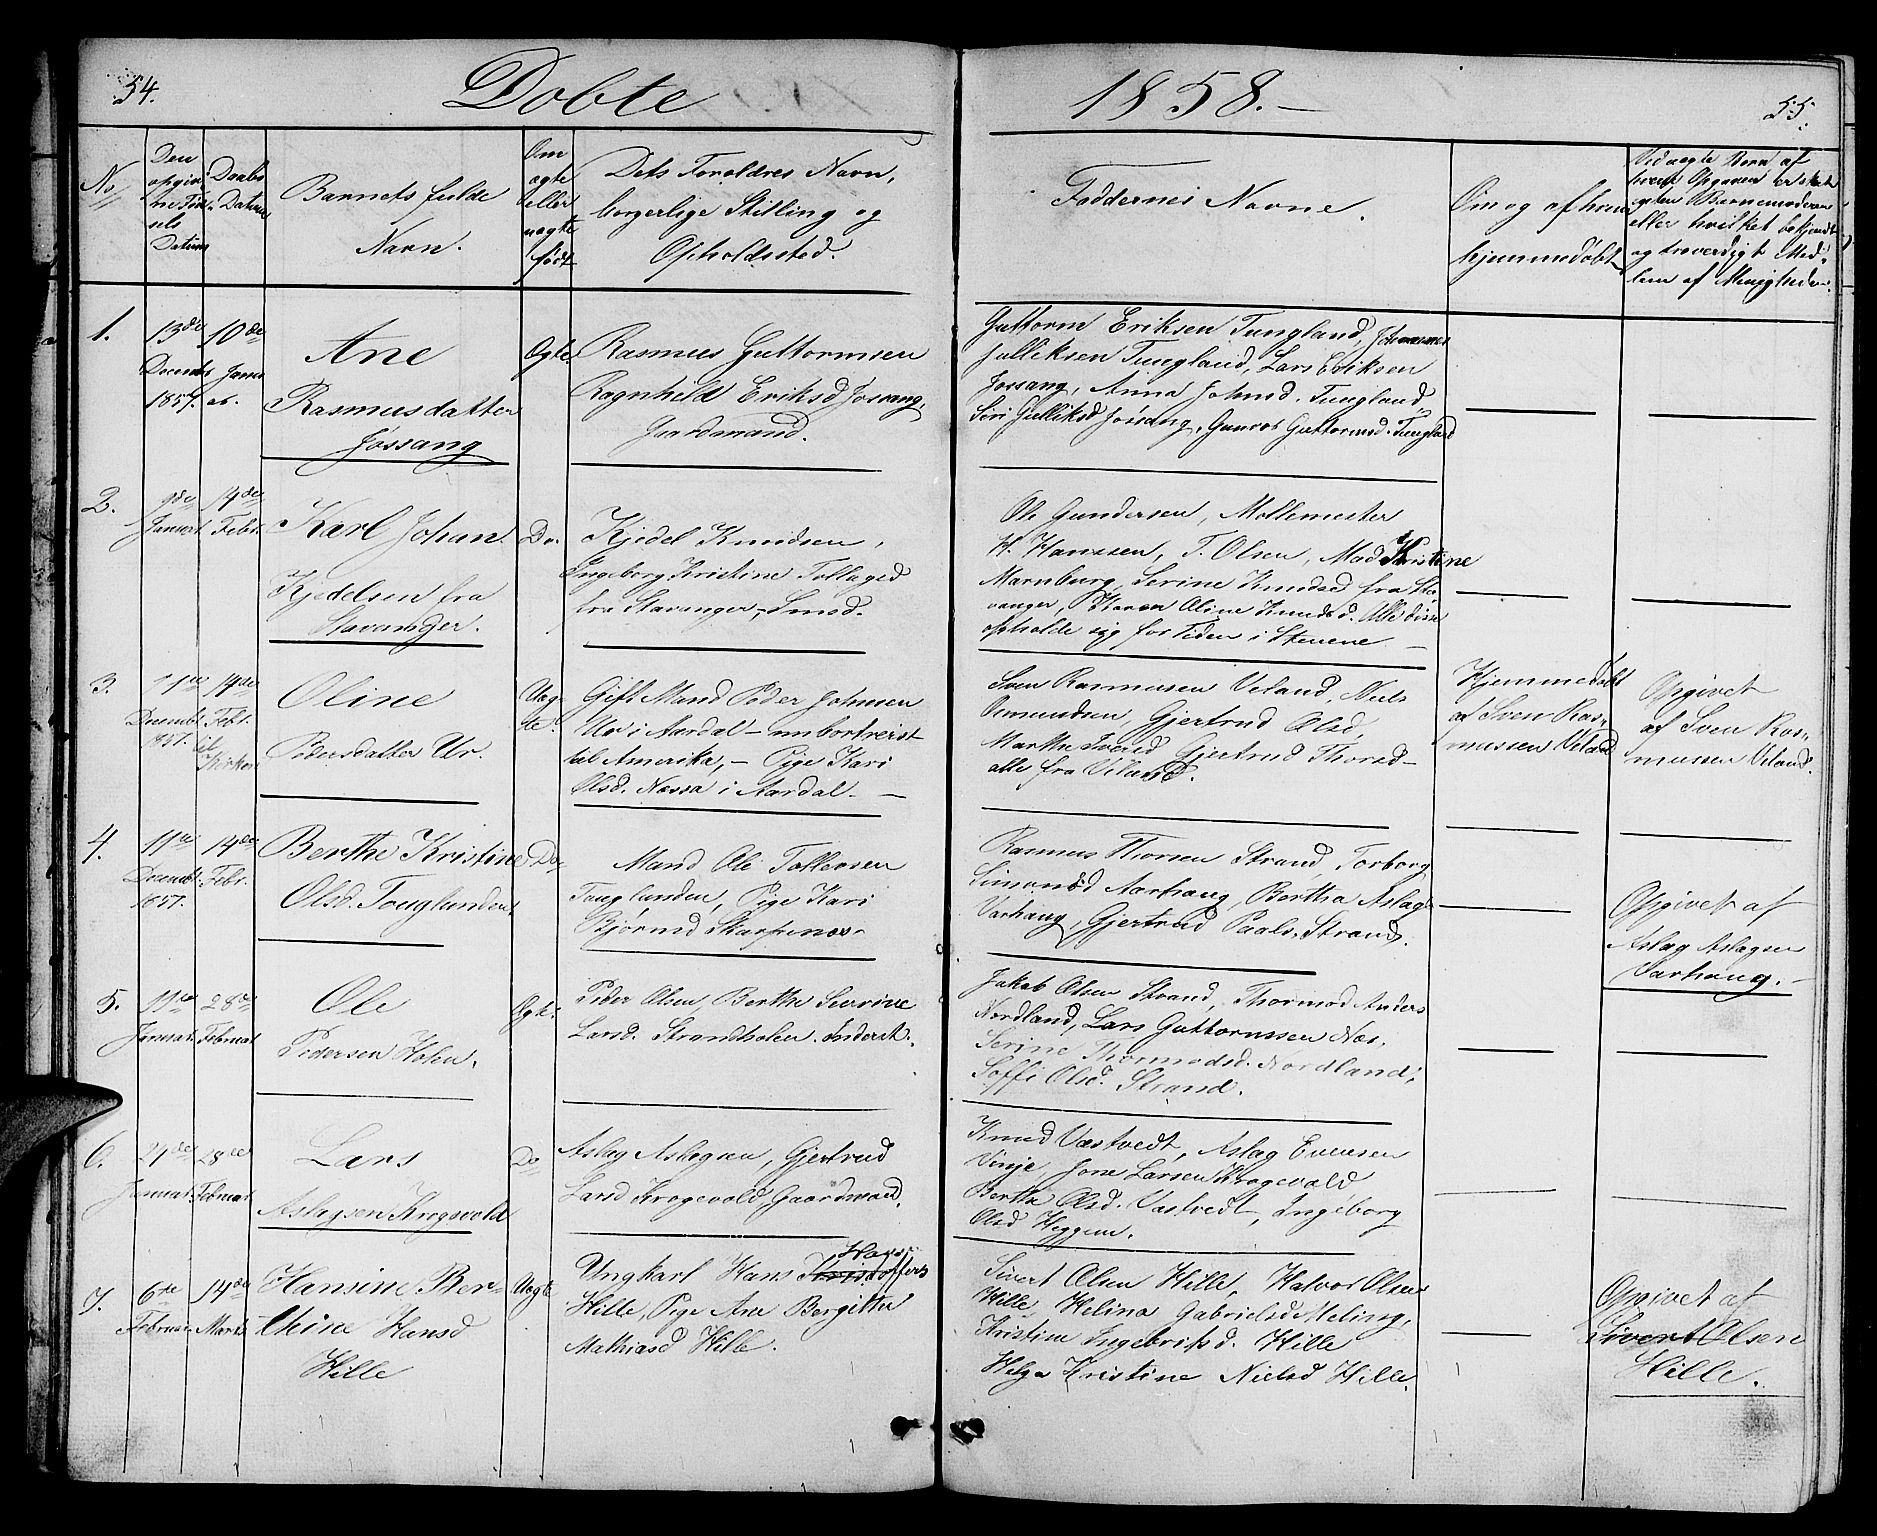 54.
Dobte
1858.—
55.
No
Den
opgiv.
ne Føds
els
Datum
Daabs
Datum
Barnets fulde
Navn.
Om
ægte
eller
uægte
født
Dets Foroldres Navn,
borgerlige Stilling og
Opholdssted.
Faddernes Navne.
Om og af hvem
hjemmedøbt
Ved uægte Børn af
hvem Opgaven er sket
eller hvilket bekjendt
og troverdigt Med-
lem af Menigheden.
1.
13de
Decembr
1857.
10de
Janu
ar.
Ane
Rasmusdatter
Jøssang
Ægte.
Rasmus Guttormsen
Ragnhild Eriksd Jøssang,
Gaardmand.
Guttorm Eriksen Tungland, Johannes
Gulliksen Tungland, Lars Eriksen
Jøssang, Anna Johnsd. Tungland
Siri Gulliksd Jøssang, Gunvor Guttormsd. Tungland
2.
9de
Januar.
14de
Febr.
Karl Johan
Kjedelsen fra
Stavanger.
Do.
Kjedel Knudsen,
Ingeborg Kristine Tollagsd
fra Stavanger, Smed.
Ole Gundersen, Møllemester
H. Hanssen, T. Olsen, Mad Kristine
Marnburg, Serine Knudsd fra Sta-
vanger, Karen Oline Knudsd. Alle disse
opholde sig for Tiden i Stenene —
3.
11te
Decembr
1857.
14de
Febr.
til
Kirken
Oline
Pedersdatter Ur.
Uæg-
te.
Gift Mand Peder Johnsen
Ur i Aardal — nu bortreist
til Amerika, — Pige Kari
Olsd. Nessa i Aardal. —
Sven Rasmusen Veland, Niels
Osmundsen, Gjertrud Olsd,
Marthe Iversd, Gjertrud Thorsd—
alle fra Veland.
Hjemmedøbt
af Sven Ras-
mussen Veland
Opgivet
af Sven Ras-
mussen Veland.
4.
11te
Decembr.
1857.
14de
Febr.
Berthe Kristine
Olsd. Tauglanden.
Do.
Mand Ole Tollevsen
Tauglanden, Pige Kari
Bjørnsd Skarpenes.
Rasmus Thorsen Strand, Torborg
Simonsd Aarhaug, Bertha Aslags
Varhaug, Gjertrud Paals. Strand.
Opgivet af
Aslag Aslagsen
Varhaug. —
5.
11te
Januar.
28de
Februar
Ole
Pedersen Holen.
Ægte.
Peder Olsen, Berthe Severine
Larsd. Strandholen. Inderst.
Jakob Olsen Strand, Thormod Anders
Nordland, Lars Guttormssen Næs.
Serine Thormodsd. Nordland,
Soffi Olsd. Strand.
6.
21de
Januar.
28de
Februar.
Lars
Aslagsen Krogevold
Do
Aslag Aslagsen, Gjertrud
Larsd Krogevold Gaardmand.
Knud Vastvedt, Aslag Evensen
Vinje, Jone Larsen Krogevold
Berthe Olsd. Vastvedt, Ingeborg
Olsd Heggem.
7.
6te
Februar.
14de
Marts
Hansine Ber-
thine Hansd
Hille
Uægte
Hans
Ungkarl Hans Kristoffers
Hille, Pige Ane Bergitte
Mathiasd Hille.
Sivert Olsen Hille, Halvor Olsen
Hille, Helina Gabrielsd Meling,
Kristine Ingebritsd. Hille
Helga Kristine Nielsd Hille.
Opgivet af
Sivert Olsen
Hille.